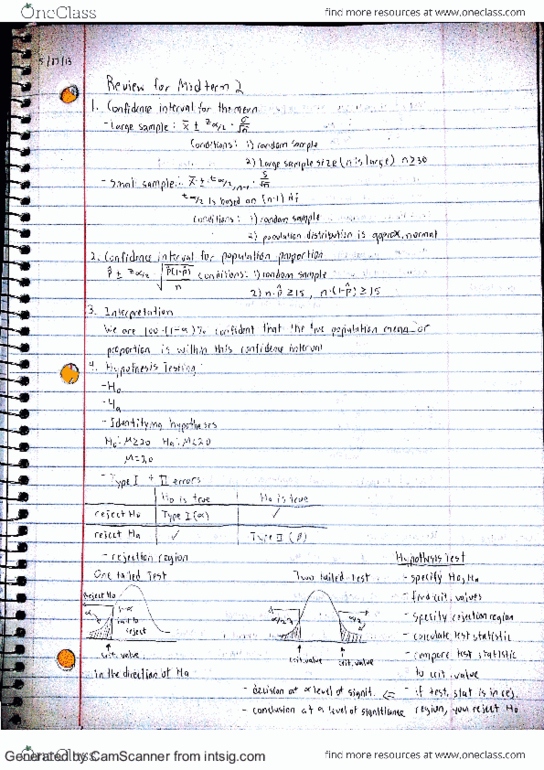 OneClass
find more resources at www.oneclass.com
5/17/13
Review for Midterm 2
1. Confidence interval for the mean
- Large sample: x̄ ± zα/2 · σ/√n
Conditions: 1) random sample
2) Large sample size (n is large) n≥30
- Small sample: x̄ ± tα/2, n-1 · s/√n
tα/2 is based on (n-1) df
Conditions: 1) random sample
2) population distribution is approx. normal
2. Confidence interval for population proportion
p̂ ± zα/2 √p̂(1-p̂)/n conditions: 1) random sample
2) n·p̂ ≥15, n·(1-p̂) ≥15
3. Interpretation
We are 100·(1-α)% confident that the true population mean or
proportion is within this confidence interval
4. Hypothesis Testing
- H₀
- Ha
- Identifying hypotheses
H₀: μ≥20 Ha: μ<20
μ=20
- Type I + II errors
H₀ is true Ha is true
reject H₀ Type I (α) ✓
reject Ha ✓ Type II (β)
- rejection region
Hypothesis Test
One tailed Test
Two tailed test
- specify H₀, Ha
- find crit. values
- specify rejection region
- calculate test statistic
- compare test statistic
to crit. value
- if test stat is in rej.
region, you reject H₀
Reject H₀
α
1-α
reject
crit. value
in the direction of Ha
α/2
α/2
crit. value
crit. value
- decision at α level of signif. ⇐
- conclusion at α level of significance
OneClass
Generated by CamScanner from intsig.com
find more resources at www.oneclass.com